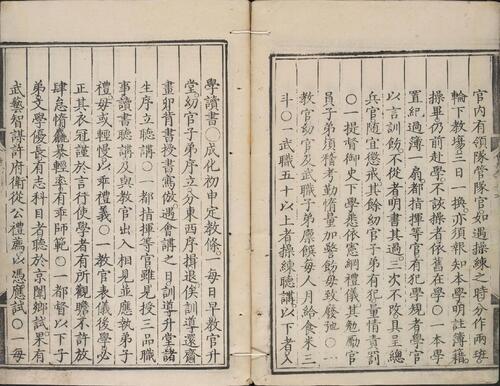 官内有領隊管隊官如遇操練之時分作兩班
輪下教場三日一換亦須報知本學明註簿籍
操畢仍前赴學不該操者依舊在學〇一本學
置紀過簿一扇都指揮等官有犯學規者學官
以言訓飭不從者明書其過三次不改具呈總
兵官隨宜懲戒其餘幼官子弟有犯量情責罰
〇一提督御史下學悉依憲綱禮儀其勉勵官
員子弟須稽考勤惰量加警飭毎次不許過三
教官幼官及武職子弟廪饌毎人月給食米三
斗〇一武職五十以上者操練聽講以下者入
學讀書〇成化初申定教條一每日早教官升
堂幼官子弟序立分東西序揖退俟訓導還齋
畫卯背書授書寫倣遇會講之日訓導升堂諸
生序立聽講〇一都指揮等官雖見授三品職
事讀書聽講及與教官出入相見並應執弟子
禮毋或輕慢以乖禮義〇一教官表儀後學必
正其衣冠謹於言行使學者有所觀瞻不許放
肆怠惰麤暴輕率有乖師範〇一都督以下子
弟文學優長有志科目者聽於京闈鄉試果有
武藝智謀許府衛從公禮薦以憑應試〇一每